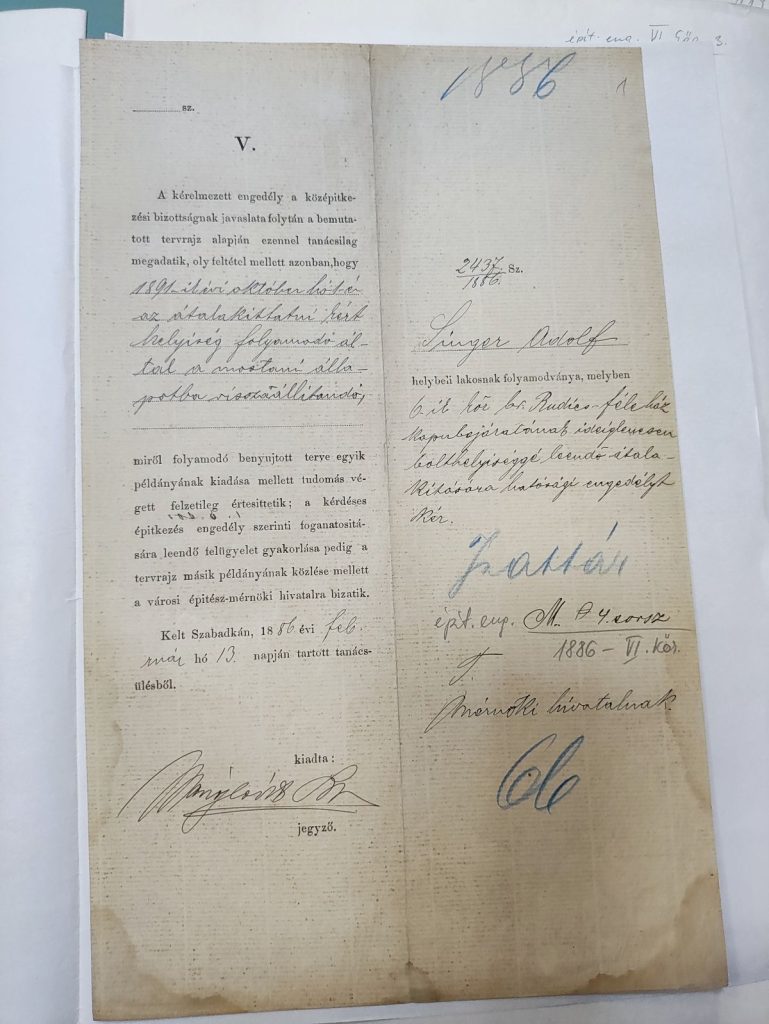 épít. eng. VI kör 3.
sz.
V.
A kérelmezett engedély a középitke-
zési bizottságnak javaslata folytán a bemuta-
tott tervrajz alapján ezennel tanácsilag
megadatik, oly feltétel mellett azonban, hogy
1891-ik évi október hó 1-én
az átalakittatni kért
helyiség folyamodó ál-
tal a mostani álla-
potba visszaállitandó,
miről folyamodó benyujtott terve egyik
példányának kiadása mellett tudomás vé-
gett felzetileg értesittetik; a kérdéses
épitkezés engedély szerinti foganatositá-
sára leendő felügyelet gyakorlása pedig a
tervrajz másik példányának közlése mellett
a városi épitész-mérnöki hivatalra bizatik.
Kelt Szabadkán, 1886 évi feb.
ruár hó 13. napján tartott tanács-
ülésből.
kiadta:
jegyző.
1886
1
2437/1886. Sz.
Singer Adolf
helybeli lakosnak folyamodványa, melyben
6. ik kör br. Rudics-féle ház
kapubejáratának ideiglenesen
bolthelyiséggé leendő átala-
kitására hatósági engedélyt
kér.
Irattár
épít. eng. sorsz
1886 – VI. kör.
Mérnöki hivatalnak
66